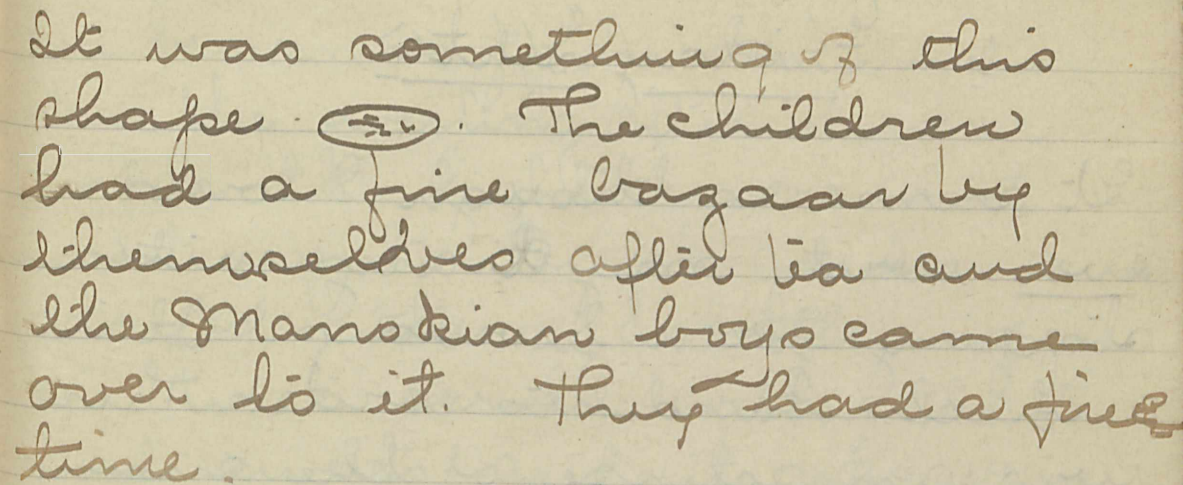 It was something of this
shape . The children
had a fine bazaar by
themselves after tea and
the Manokian boys came
over to it. They had a fine
time.